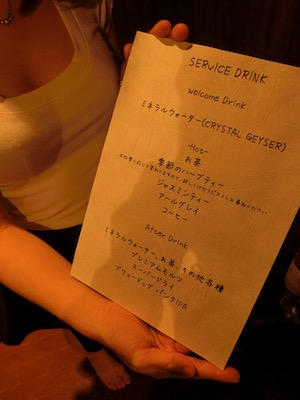 SERVICE DRINK
Welcome Drink
ミネラルウォーター(CRYSTAL GEYSER)
-Hot-
お茶
季節のハーブティー
ジャスミンティー
アールグレイ
コーヒー
After Drink
ミネラルウォーター、お茶、その他各種
プレミアムモルツ
スーパードライ
ブリュードッグ・パンクIPA